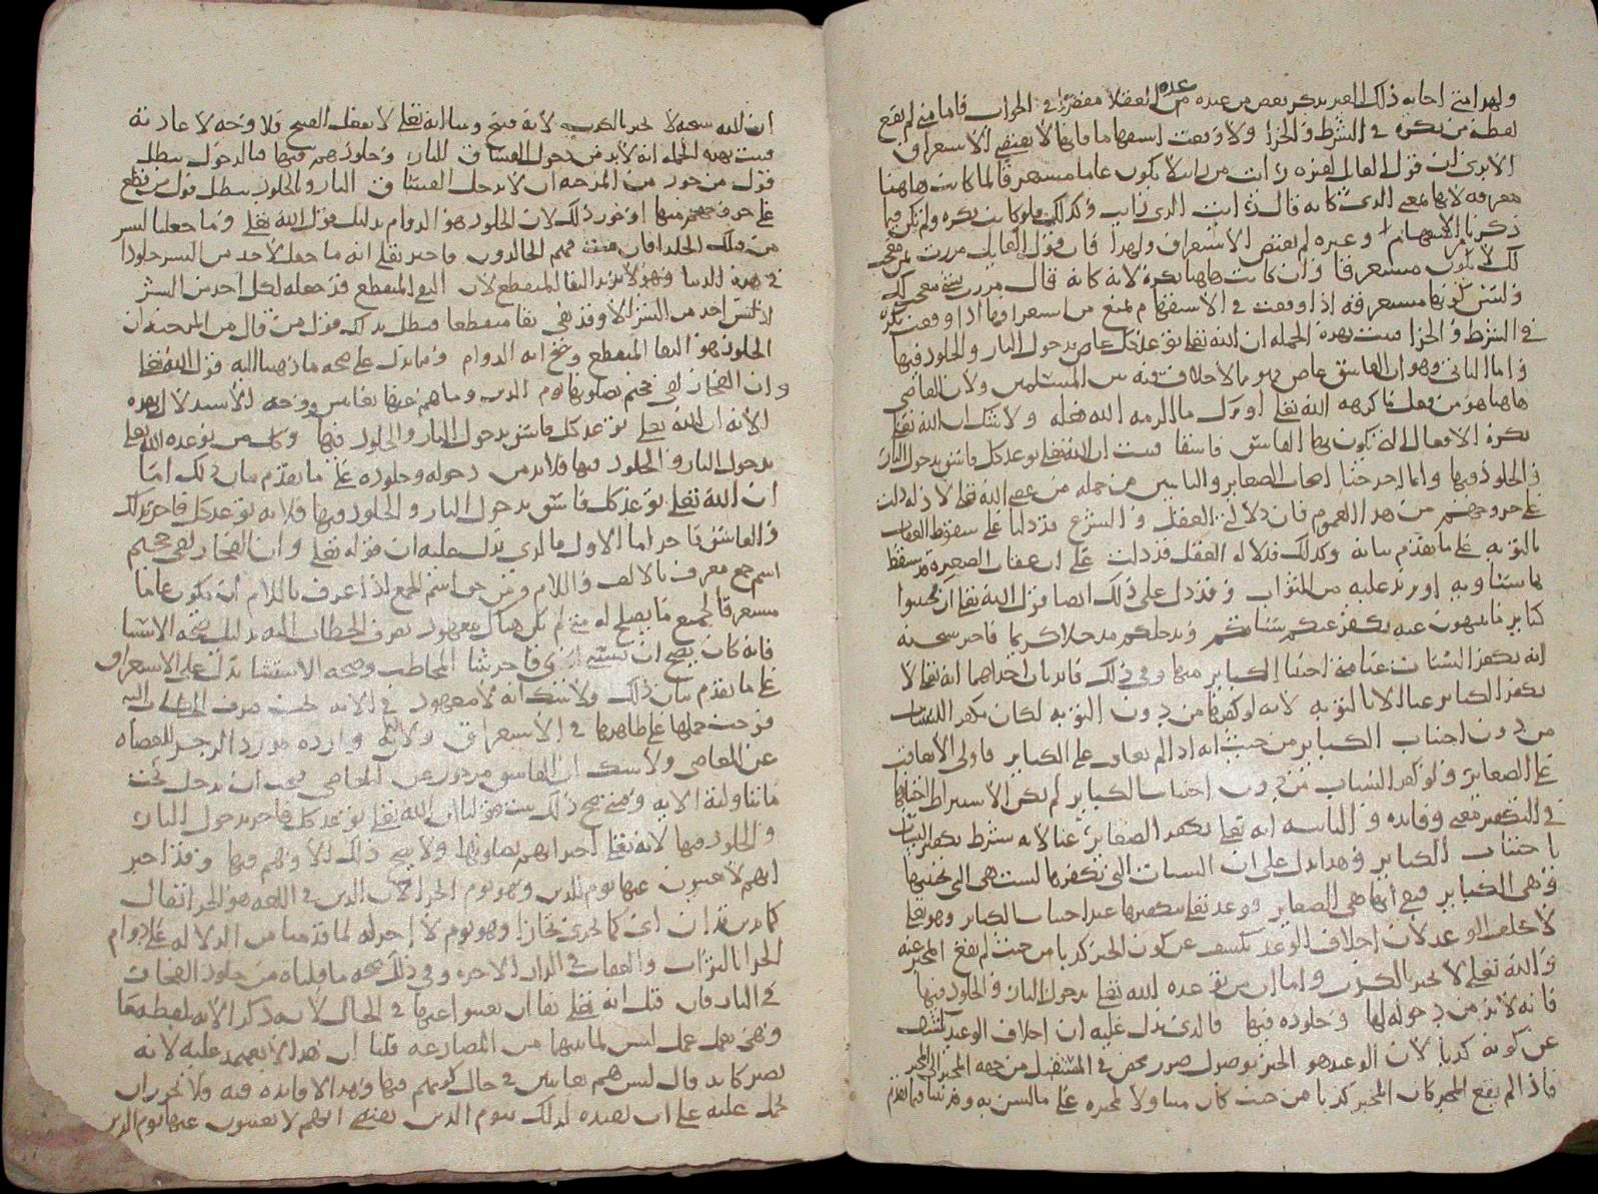 ولهذا متى اجابه ذلك الغير بذكر بعض من عنده من العقلا في الجواب فاما متى لم يقع
لفظة من نكرة في الشرط والجزا ولا وقعت استفهاما فانها لا تقتضي الاستغراق
الا ترى ان قول القائل لغيره رأيت من رأيت لا يكون عاما مستغرقا لما كانت هاهنا
معرفة لانها بمعنى الذي كانه قال رأيت الذي رأيت وكذلك فلو كانت نكرة ولم تكن فيما
ذكرنا الاستفهام وغيره لم يقتض الاستغراق ولهذا فان قول القائل مررت بمن معجب
لك لا يكون مستغرقا وان كانت هاهنا نكرة لانه كانه قال مررت معجب لك
مستغرقة اذا وقعت في الاستفهام لم يمنع من استغراقها اذا وقعت نكرة
في الشرط والجزا فثبت بهذه الجملة ان الله تعالى توعد كل عاص بدخول النار والخلود فيها
واما الثاني وهو ان الفاسق عاص فهو مما لا خلاف فيه بين المسلمين ولان العاصي
هاهنا هو من فعل ما كرهه الله تعالى او ترك ما الزمه الله فعله ولا شك ان الله تعالى
نكره الافعال التي يكون بها الفاسق فاسقا فثبت ان الله تعالى توعد كل فاسق بدخول النار
والخلود فيها وانما اخرجنا اصحاب الصغاير والتايبين من جملة من عصى الله تعالى لادلة دلت
على خروجهم من هذا العموم فان دلالة العقل والشرع قد دلتا على سقوط العقاب
بالتوبة على ما تقدم بيانه وكذلك فدلالة العقل قد دلت على ان عقاب الصغيرة قد سقط
بما يساويه او يزيد عليه من الثواب وقد دل على ذلك ايضا قول الله تعالى ان تجتنبوا
كباير ما تنهون عنه نكفر عنكم سيئاتكم وندخلكم مدخلا كريما فاخبر سبحانه
انه يكفر السيئات عنا متى اجتنبنا الكباير منها وفي ذلك فايدتان احداهما انه تعالى لا
يكفر الكباير عنا الا بالتوبة لانه لو كفرها من دون التوبة لكان يكفر السيئات
من دون اجتناب الكباير من حيث انه اذا لم يعاقب على الكباير فاولى الا يعاقب
على الصغاير ولو كفر السيئات من دون اجتناب الكباير لم يكن لاشتراط اجتنابها
في التكفير معنى وفايدة والثانية انه تعالى يكفر الصغاير عنا لانه شرط تكفير السيئات
باجتناب الكباير وهذا يدل على ان السيئات التي تكفرها ليست هي التي تجتنبها
وهي الكباير فبقي انها هي الصغاير ووعد تعالى بتكفيرها عند اجتناب الكباير وهو تعالى
لا يخلف الوعد لان اخلاف الوعد يكشف عن كون الخبر كذبا من حيث لم يقع المخبر عنه
والله تعالى لا يخبر بالكذب واما ان من توعده الله تعالى بدخول النار والخلود فيها
فانه لا بد من دخوله لها وخلوده فيها فالذي يدل عليه ان اخلاف الوعيد يكشف
عن كونه كذبا لان الوعيد هو الخبر بوصول ضرر محض في المستقبل من جهة المخبر الى المخبر
فاذا لم يقع المخبر كان المخبر كذبا من حيث كان متناولا لمخبره على ما ليس به وقد بينا فيما تقدم
ان الله سبحانه لا يخبر بالكذب لانه قبيح وبينا انه تعالى لا يفعل القبيح فلا وجه لاعادته
فثبت بهذه الجملة انه لا بد من دخول الفساق النار وخلودهم فيها فالدخول يبطل
قول من جوز من المرجئة ان لا يدخل الفساق النار وبالخلود يبطل قول من قطع
على خروجهم منها او جوز ذلك لان الخلود هو الدوام بدليل قول الله تعالى وما جعلنا لبشر
من قبلك الخلد افان مت فهم الخالدون فاخبر تعالى انه ما جعل لاحد من البشر خلودا
في هذه الدنيا وهو لا يريد البقا المنقطع لان البقا المنقطع قد جعله لكل احد من البشر
اذ ليس احد من البشر الا وقد بقي بقا منقطعا فبطل بذلك قول من قال من المرجئة ان
الخلود هو البقا المنقطع وصح انه الدوام ومما يدل على صحة ما ذهبنا اليه قول الله تعالى
وان الفجار لفي جحيم يصلونها يوم الدين وما هم عنها بغايبين ووجه الاستدلال بهذه
الاية ان الله تعالى توعد كل فاسق بدخول النار والخلود فيها وكل من توعده الله تعالى
بدخول النار والخلود فيها فلا بد من دخوله وخلوده على ما تقدم بيان ذلك اما
ان الله تعالى توعد كل فاسق بدخول النار والخلود فيها فلانه توعد كل فاجر بذلك
والفاسق فاجر اما الاول فالذي يدل عليه ان قوله تعالى وان الفجار لفي جحيم
اسم جمع معرف بالالف واللام ومن حق اسم الجمع اذا عرف باللام ان يكون عاما
مستغرقا لجميع ما يصلح له متى لم يكن هناك معهود يصرف الخطاب اليه بدليل صحة الاستثنا
فانه كان يصح ان يستثني اي فاجر شا المخاطب وصحة الاستثنا تدل على الاستغراق
على ما تقدم بيان ذلك ولا شك انه لا معهود في الاية يجب صرف الخطاب اليه
فوجب حملها على ظاهرها في الاستغراق ولانها واردة مورد الزجر للعصاة
عن المعاصي ولا شك ان الفاسق مزجور عن المعاصي فيجب ان يدخل تحت
ما تناولته الاية ومتى صح ذلك ثبت قولنا ان الله تعالى توعد كل فاجر بدخول النار
والخلود فيها لانه تعالى اخبر انهم يصلونها ولا يصح ذلك الا وهم فيها وقد اخبر
انهم لا يغيبون عنها يوم الدين وهو يوم الجزا لان الدين في اللغة هو الجزا تقال
كما تدين تدان اي كما تجزي تجازا وهو يوم لا اخر له لما قدمنا من الدلالة على دوام
الجزا بالثواب والعقاب في الدار الاخرة وفي ذلك صحة ما قلناه من خلود الفجار
في النار فان قيل انه تعالى نفا ان يغيبوا عنها في الحال لانه ذكر الاية بلفظة ما
وهي تعمل عمل ليس لما بينهما من المضارعة قلنا ان هذا لا يعتمد عليه لانه
يصير كانه قال ليس هم بغايبين في حال كونهم فيها وهذا لا فايدة فيه ولا يجوز ان
يحمل عليه على ان تقييده لذلك بيوم الدين يقتضي انهم لا يغيبون عنها يوم الدين